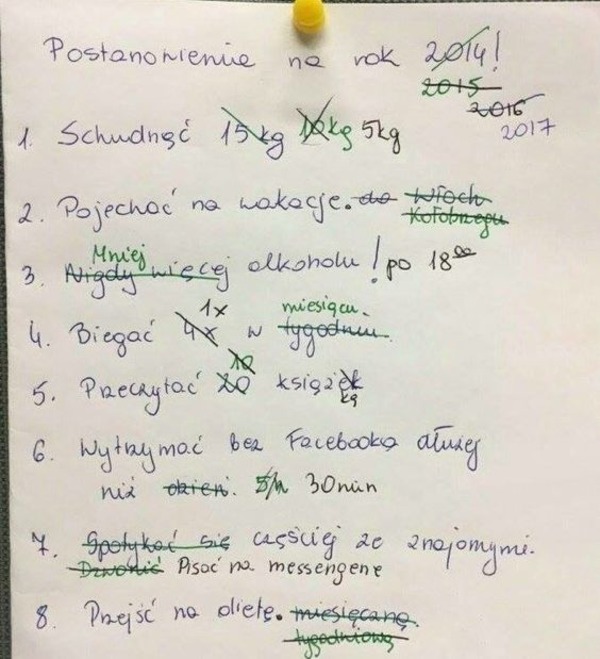 Postanowienie na rok 2014!
2015
2016
2017
1. Schudnąć 15kg 10kg 5kg
2. Pojechać na wakacje. do Włoch
Kołobrzegu
Mniej
3. Nigdy więcej alkoholu! po 18⁰⁰
1x miesiącu.
4. Biegać 4x w tygodniu.
10
5. Przeczytać 20 książek
kę
6. Wytrzymać bez Facebooka dłużej
niż dzień. 5h 30min
7. Spotykać się częściej ze znajomymi.
Dzwonić Pisać na messengerze
8. Przejść na dietę. miesięczną.
tygodniową